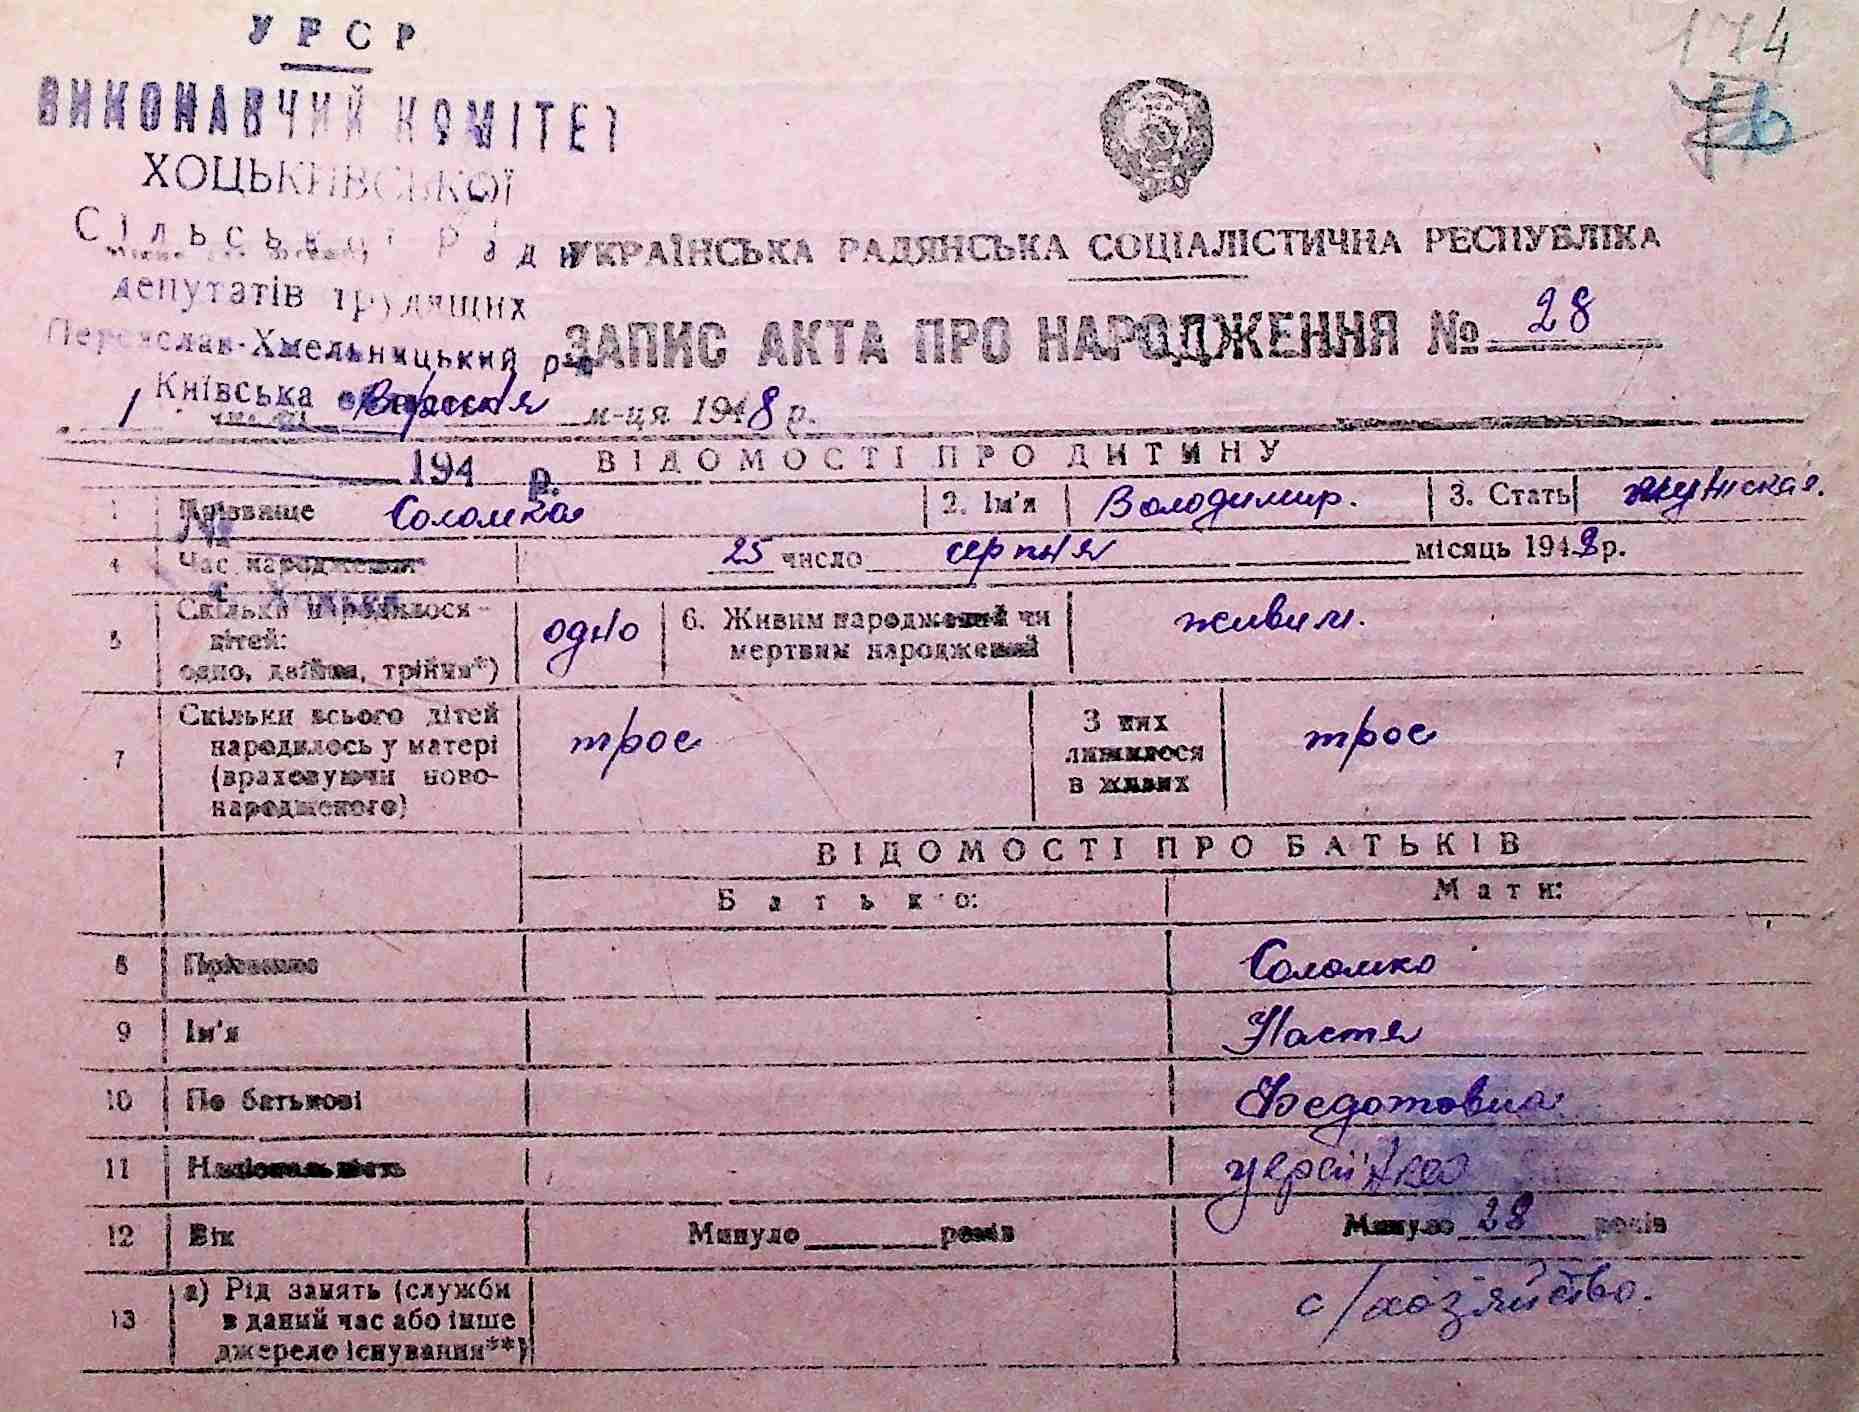 УРСР
174
ВИКОНАВЧИЙ КОМІТЕТ
ХОЦЬКІВСЬКОЇ
Сільської Ради
депутатів трудящих
Переяслав-Хмельницький р-н
Київська
УКРАЇНСЬКА РАДЯНСЬКА СОЦІАЛІСТИЧНА РЕСПУБЛІКА
ЗАПИС АКТА ПРО НАРОДЖЕННЯ № 28
1 м-ця 1948 р.
194 р.
№
ВІДОМОСТІ ПРО ДИТИНУ
1 Прізвище Соломка 2. Ім'я Володимир. 3. Стать мужская.
4 Час народження 25 число серпня місяць 1948 р.
с. Хоцьки
5 Скільки народилося дітей: одно, двійня, трійня*) одно 6. Живим народжений чи мертвим народжений живим.
7 Скільки всього дітей народилось у матері (враховуючи новонародженого) троє З них лишилося в живих троє
ВІДОМОСТІ ПРО БАТЬКІВ
Батько: Мати:
8 Прізвище Соломко
9 Ім'я Настя
10 По батькові Федотовна
11 Національність україн
12 Вік Минуло ____ років Минуло 28 років
13 а) Рід занять (служби в даний час або інше джерело існування**) с/хозяйство.